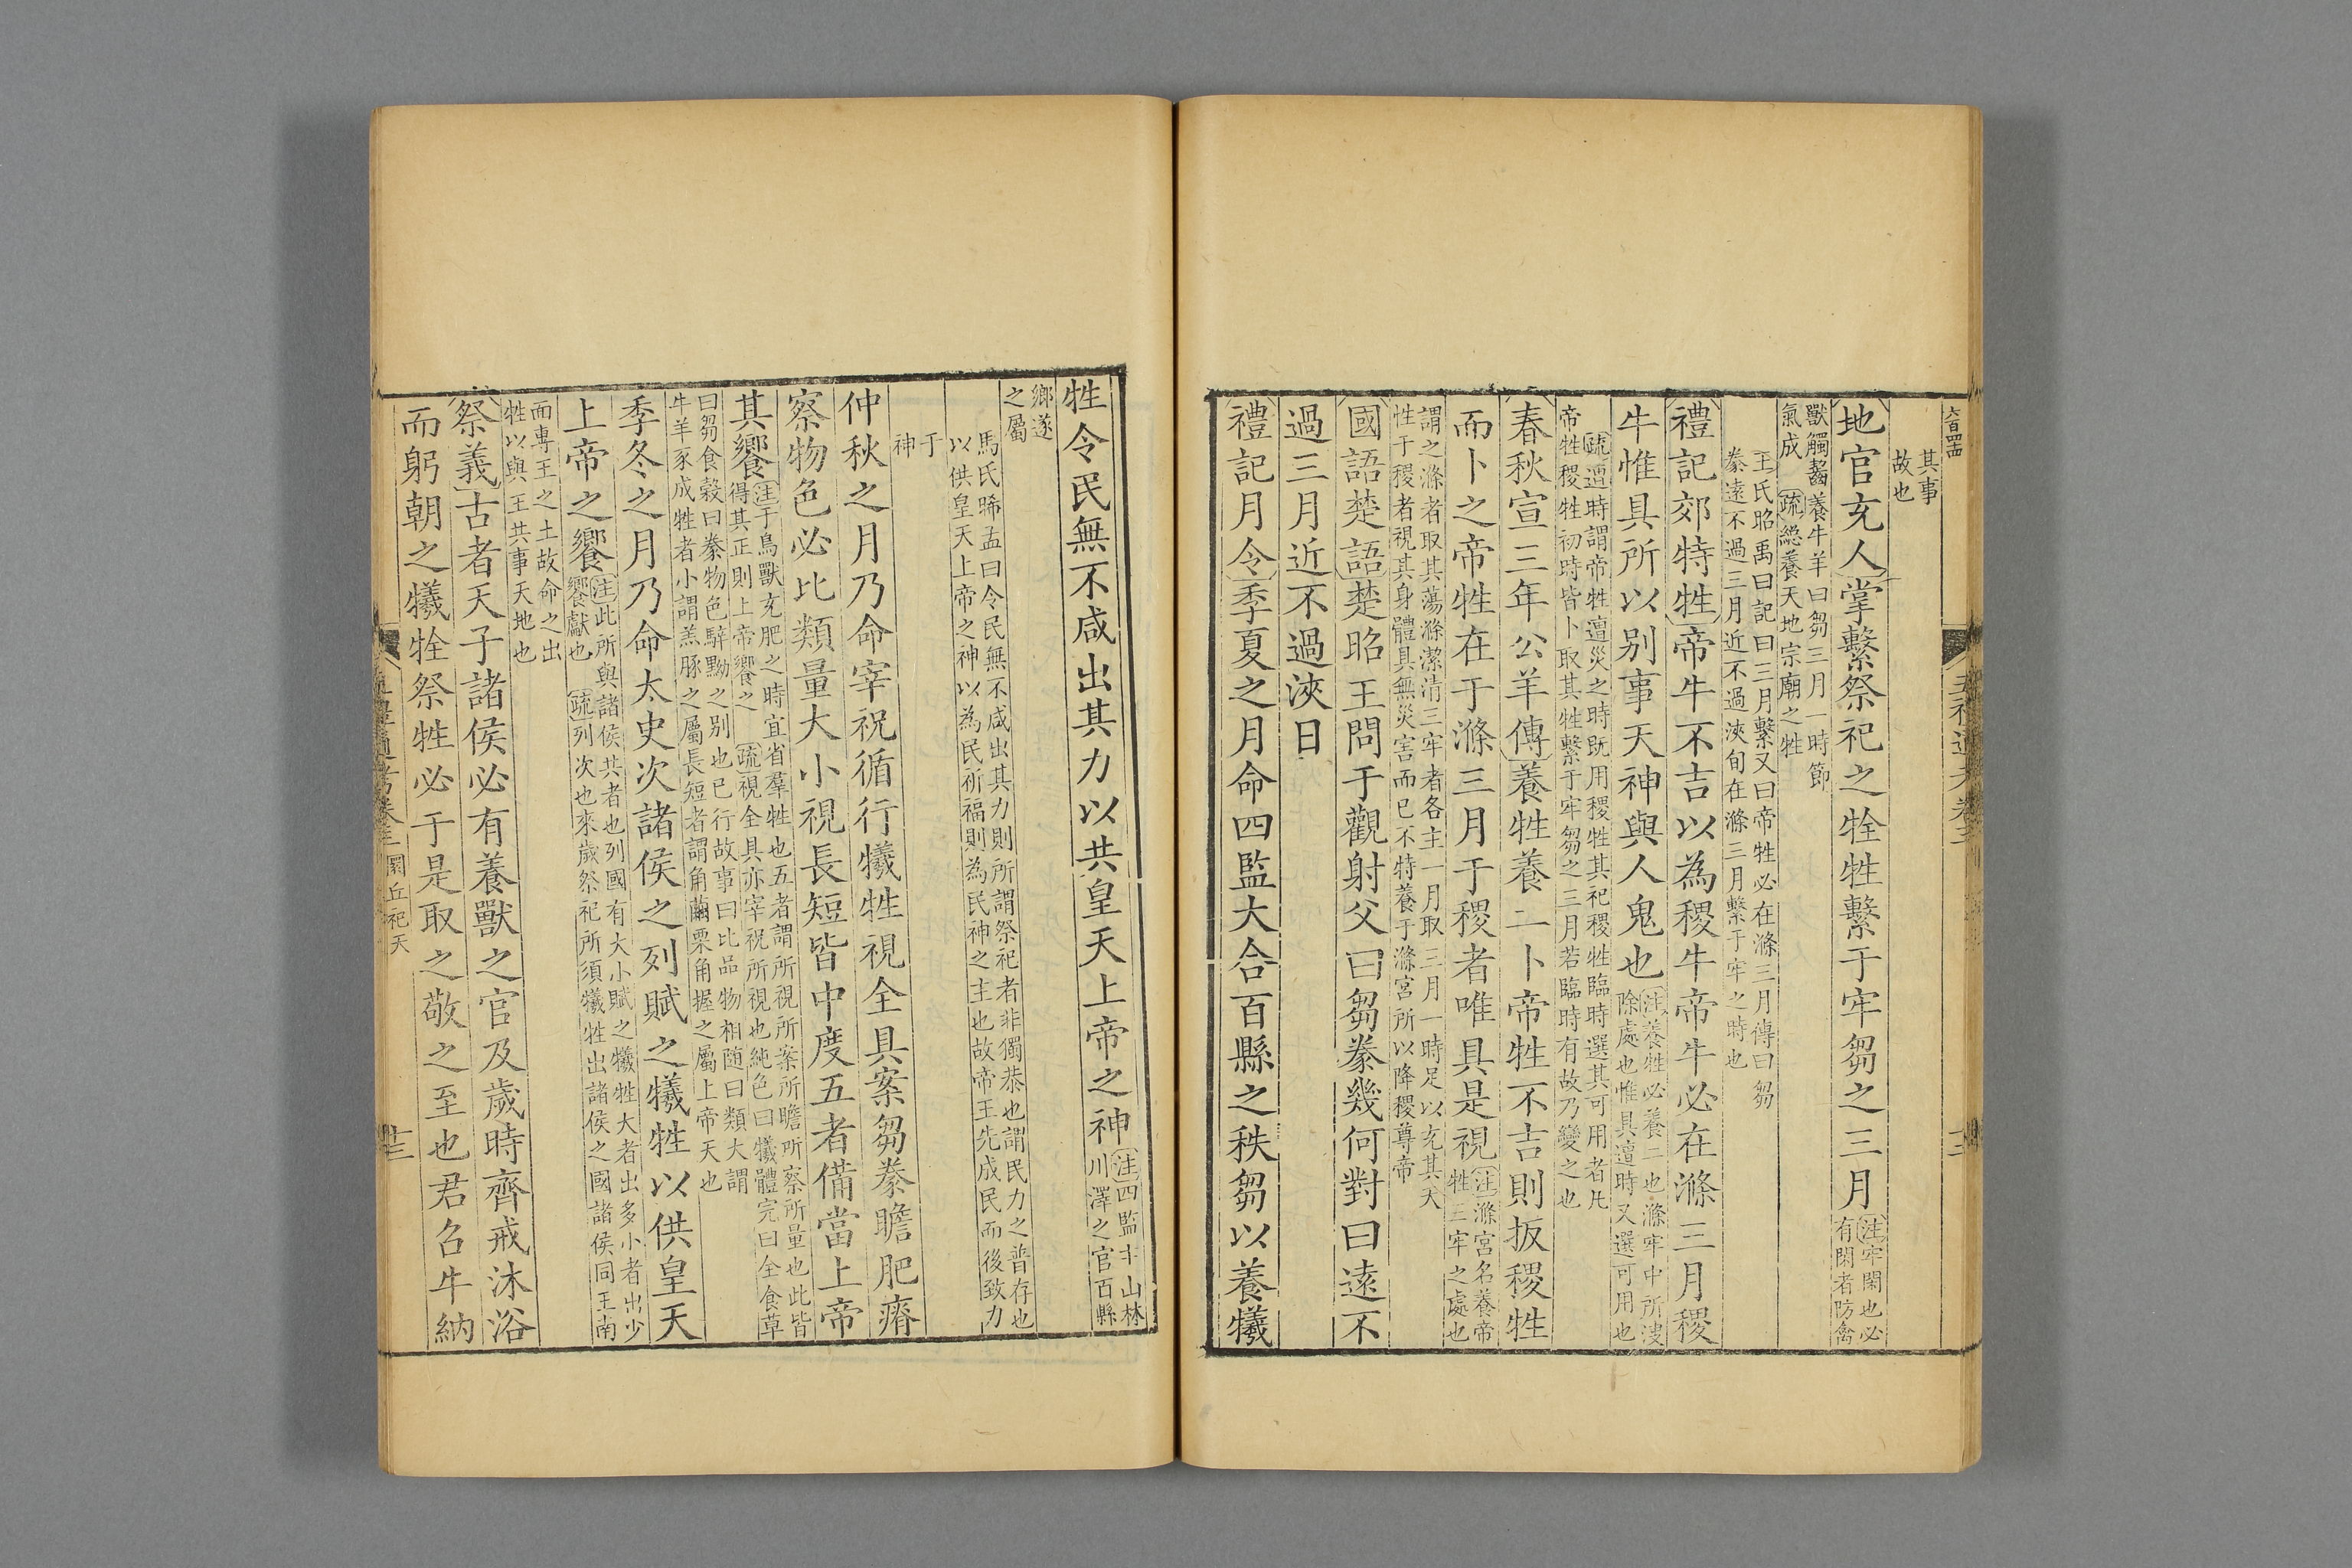 其事
故也
地官充人掌繫祭祀之牷牲繫于牢芻之三月
注牢閑也必
有閑者防禽
獸觸齧養牛羊曰芻三月一時節
氣成 疏總養天地宗廟之牲
王氏昭禹曰記曰三月繫又曰帝牲必在滌三月傳曰芻
豢遠不過三月近不過浹旬在滌三月繫于牢之時也
禮記郊特牲帝牛不吉以為稷牛帝牛必在滌三月稷
牛惟具所以别事天神與人鬼也
注養牲必養二也滌牢中所溲
除處也惟具遭時又選可用也
疏遭時謂帝牲遭災之時既用稷牲其祀稷牲臨時選其可用者凡
帝牲稷牲初時皆卜取其牲繫于牢芻之三月若臨時有故乃變之也
春秋宣三年公羊傳養牲養二卜帝牲不吉則扳稷牲
而卜之帝牲在于滌三月于稷者唯具是視
注滌宮名養帝
牲三牢之處也
謂之滌者取其蕩滌潔清三牢者各主一月取三月一時足以充其天
牲于稷者視其身體具無災害而已不特養于滌宮所以降稷尊帝
國語楚語楚昭王問于觀射父曰芻豢幾何對曰遠不
過三月近不過浹日
禮記月令季夏之月命四監大合百縣之秩芻以養犧
牲令民無不咸出其力以共皇天上帝之神
注四監主山林
川澤之官百縣
鄉遂
之屬
馬氏睎孟曰令民無不咸出其力則所謂祭祀者非獨恭也謂民力之普存也
以供皇天上帝之神以為民祈福則為民神之主也故帝王先成民而後致力
于
神
仲秋之月乃命宰祝循行犧牲視全具案芻豢瞻肥瘠
察物色必比類量大小視長短皆中度五者備當上帝
其饗
注于鳥獸充肥之時宜省羣牲也五者謂所視所案所瞻所察所量也此皆
得其正則上帝饗之 疏視全具亦宰祝所視也純色曰犧體完曰全食草
曰芻食穀曰豢物色騂黝之别也已行故事曰比品物相随曰類大謂
牛羊豕成牲者小謂羔豚之屬長短者謂角繭栗角握之屬上帝天也
季冬之月乃命太史次諸侯之列賦之犧牲以供皇天
上帝之饗
注此所與諸侯共者也列國有大小賦之犧牲大者出多小者出少
饗獻也 疏列次也來歲祭祀所須犧牲出諸侯之國諸侯同王南
面專王之土故命之出
牲以與王共事天地也
祭義古者天子諸侯必有養獸之官及歲時齊戒沐浴
而躬朝之犧牷祭牲必于是取之敬之至也君召牛納
圜丘祀天